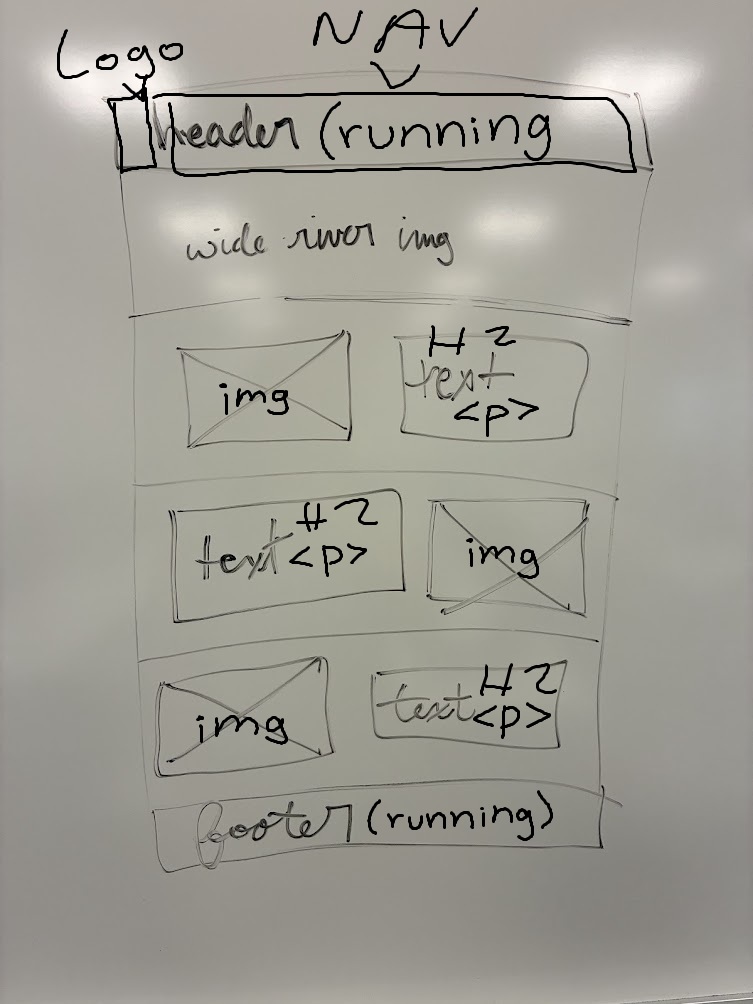 NAV
Logo
header (running
wide river img
img
H2
text
<p>
H2
text <p>
img
img
H2
text <p>
footer (running)